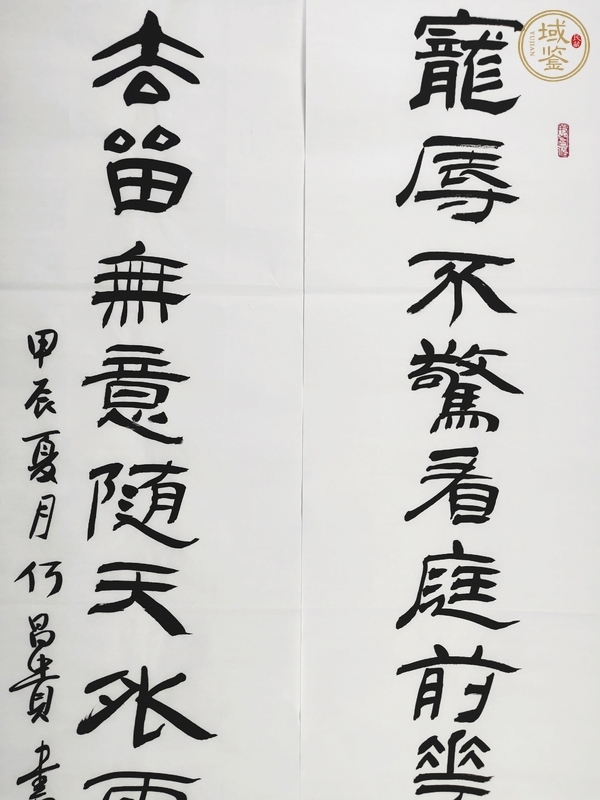 寵辱不驚看庭前華
去留無意隨天外雲
甲辰夏月何昌貴書
域鉴
YUJIAN